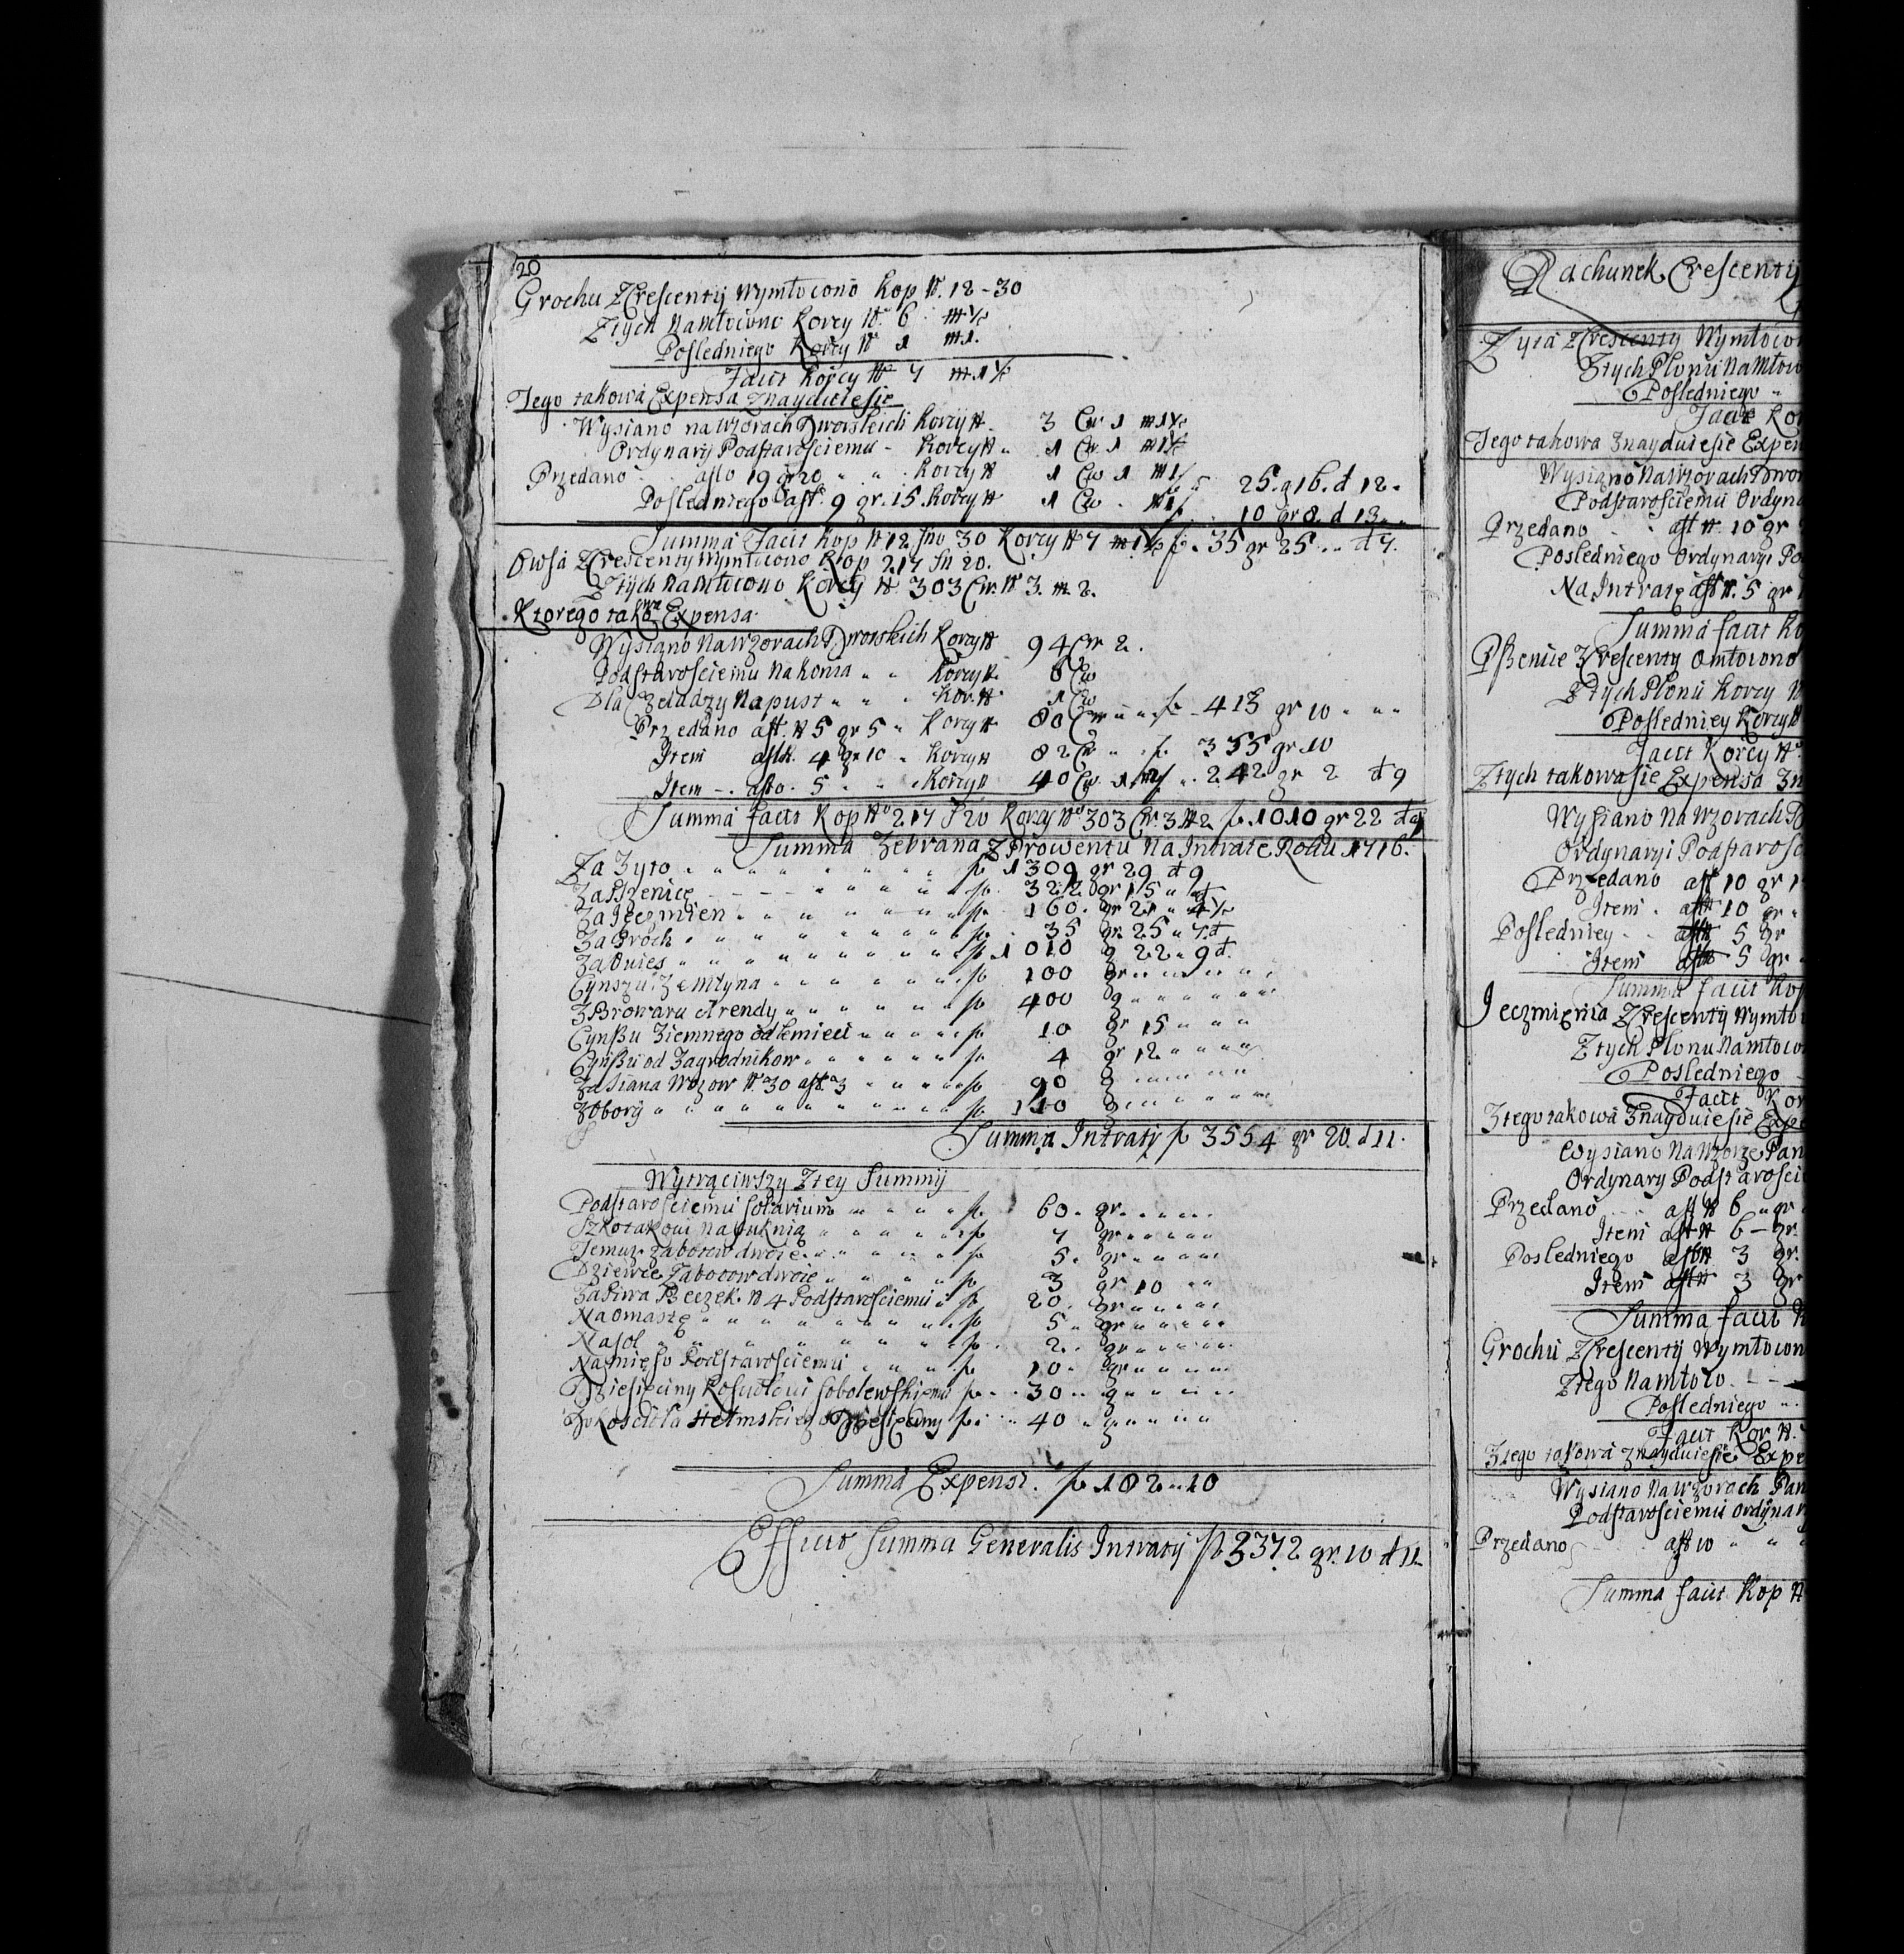 20
Grochu Z Crescentÿ Wymłocono Kop N. 12 - 30
Ztych Namłocono Korcy N. 6 m ½
Posledniego Korcy N 1 m 1.
Facit Korcy N 7 m 1 ½
Tego takowa Expensa Znayduiesie
Wysiano na wzorach Dworskich Korcy N. 3 Cw 1 m 1½
Ordynarÿ Podstarosciemu - Korcy N 1 Cw 1 m 1½
Przedano a flo 19 gr 20 Korcy N 1 Cw 1 m 1/ 25. g 16. d 12.
Posledniego a fl. 9 gr. 15. Korcy N 1 Cw 10 gr 8. d 13.
Summa Facit Kop N 12 sno 30 Korcy N 7 m 1½ f. 35 gr 25 d 7.
Owsa Z Crescenty Wymłocono Kop 217 Sn 20.
Ztych Namłocono Korcy N. 303 Cw. N 3. m 2.
Ktorego takowa Expensa
Wysiano Na Wzorach Dworskich Korcy N 94 Cw 2.
Podstarosciemu Na konia Korcy N. 6 Cw
Dla Czeladzy Na pust Kor. N 1 Cw
Przedano a fl. N 5 gr 5 Korcy N 80 Cw f. 413 gr 10
Item a fl N. 4 gr 10 Korcy N 82 Cw f. 355 gr 10
Item a flo. 5 Korcy N 40 Cw. 1 m/ 242 gr 2 d 9
Summa facit Kop No 217 S 20 Korcy No 303 Cw. 3 N 2 f. 1010 gr 22 d 9
Summa Zebrana Z Prowentu Na Intratę Roku 1716.
Za Zyto f. 1309 gr 29 d 9
Za Pszenicę f. 322 gr 15 d
Za Jęczmien f. 160. gr 21 4½
Za Groch f. 35 gr 25 7 d
Za Owies f. 1010 g 22 9 d.
Cynszu Ze Młyna f. 100 gr
Z Browaru Arendy f. 400 g
Cynszu Ziemnego od Kmieci f. 10 gr 15
Cynszu od Zagrodnikow f. 4 gr 12
Za Siana Wozow N. 30 a fl. 3 f. 90 g
Z Obory f. 110 g
Summa Intraty f. 3554 gr 20. d 11.
Wytrąciwszy Ztey Summÿ
Podstarosciemu Solarium f. 60. gr.
Szkotakowi Na Suknią f. 7 gr
Temuz Zabotow dwoie f. 5. gr
Dziewce Zabotow dwoie f. 3 gr 10
Za Piwa Beczek N 4 Podstarosciemu f. 20. gr
Na Omastę f. 5 gr
Na Sol f. 2. gr
Na Mięso Podstarosciemu f. 10 gr
Dziesięciny Kosciołowi Sobolewskiemu f. 30 g
Do Kosciła Dziesięciny f. 40 g
Summa Expensi. f. 182 10
Efficit Summa Generalis Intraty f. 3372 gr. 10 d 11
Rachunek Crescenty
Zyta Z Crescenty Wymłocon
Ztych Plonu Namłoco
Posledniego
Facit Kor
Tego takowa Znayduiesie Expen
Wysiano Na Wzorach Dwor
Podstarosciemu Ordyna
Przedano a fl N. 10 gr
Posledniego Ordynaryi Po
Na Intratę a fl N. 5 gr
Summa facit Ko
Pszenice Z Crescenty Omłocono
Ztych Plonu Korcy N
Posledniey Korcy N
Facit Korcy N.
Ztych takowa sie Expensa Zn
Wysiano Na Wzorach D
Ordynaryi Podstarosc
Przedano a fl 10 gr 1
Item a fl N 10 gr
Posledniey a fl N 5 gr
Item a fl N 5 gr
Summa facit Kop
Jeczmięnia Z Crescentÿ Wymło
Ztych Plonu Namłocon
Posledniego
Facit Kor
Ztego takowa Znayduiesie Expe
Wysiano Na Wzorze Pan
Ordynary Podstarosci
Przedano a fl N 6 gr
Item a fl N 6 - gr.
Posledniego a fl N 3 gr.
Item a fl N 3 gr
Summa facit K
Grochu Z Crescentÿ Wymłocon
Ztego Namłoto
Posledniego
Facit Kor N.
Ztego takowa Znayduiesie Expe
Wysiano Na Wzorach Pan
Podstarosciemu Ordynar
Przedano a fl 10
Summa facit Kop N